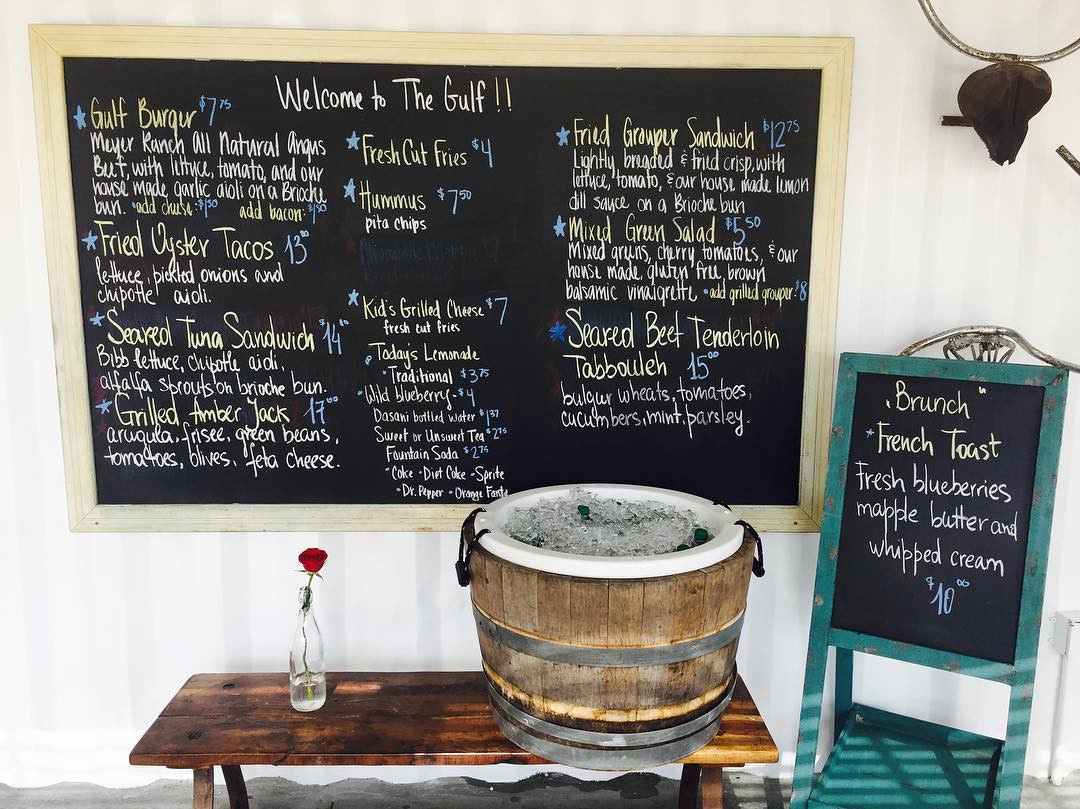 Welcome to The Gulf !!
Gulf Burger $7.75
Meyer Ranch All Natural Angus
Beef, with lettuce, tomato, and our
house made garlic aioli on a Brioche
bun. • add cheese: $1.50 add bacon: $1.50
Fried Oyster Tacos 13.00
lettuce, pickled onions and
chipotle aioli.
Seared Tuna Sandwich $14.00
Bibb lettuce, chipotle aioli,
alfalfa sprouts on brioche bun.
Grilled Amber Jack 17.00
arugula, frisee, green beans,
tomatoes, olives, feta cheese.
Fresh Cut Fries $4
Hummus $7.50
pita chips
Kid's Grilled Cheese $7
fresh cut fries
Today's Lemonade
• Traditional $3.75
• Wild blueberry - $4
Dasani bottled water $1.37
Sweet or Unsweet Tea $2.75
Fountain Soda $2.75
• Coke • Diet Coke • Sprite
• Dr. Pepper • Orange Fanta
Fried Grouper Sandwich $12.75
Lightly breaded & fried crisp, with
lettuce, tomato, & our house made lemon
dill sauce on a Brioche bun
Mixed Green Salad $5.50
Mixed greens, cherry tomatoes, & our
house made, gluten free, brown
balsamic vinaigrette • add grilled grouper: $8
Seared Beef Tenderloin
Tabbouleh 15.00
bulgur wheats, tomatoes,
cucumbers, mint, parsley.
"Brunch"
* French Toast
Fresh blueberries
mapple butter and
whipped cream
$10.00